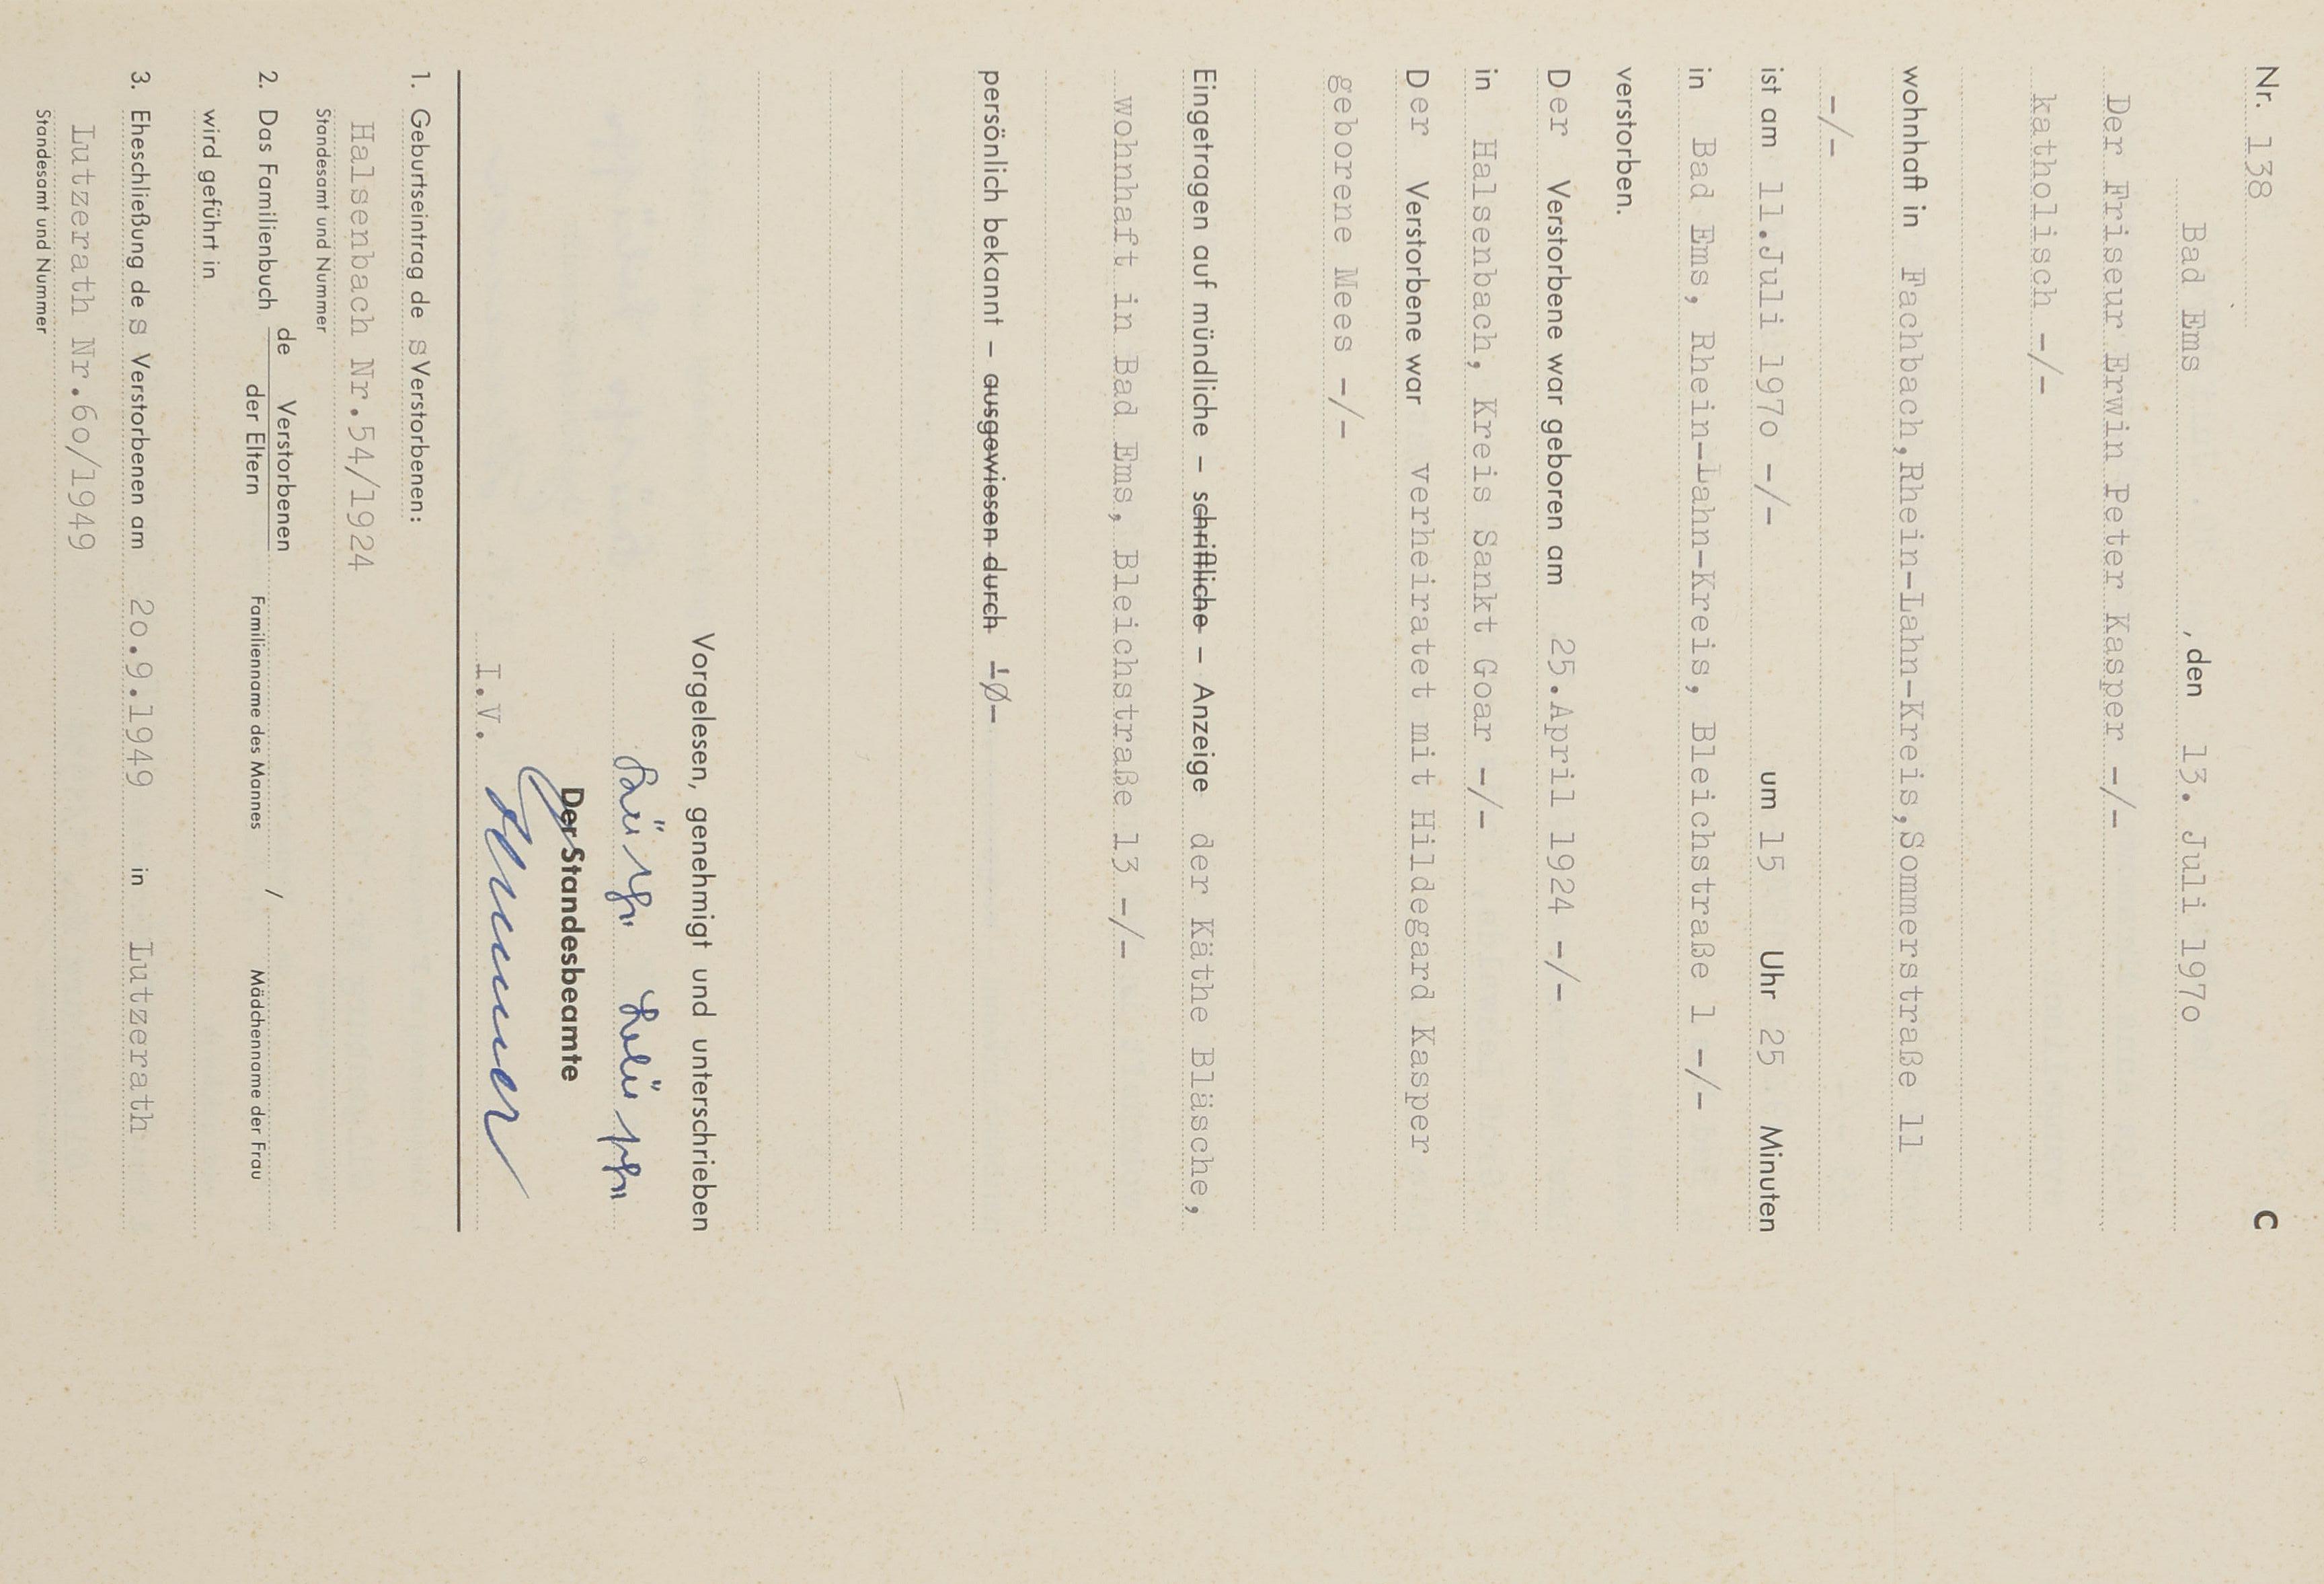 Nr. 138 C
Bad Ems , den 13. Juli 197o
Der Friseur Erwin Peter Kasper -/-
katholisch -/-
wohnhaft in Fachbach,Rhein-Lahn-Kreis,Sommerstraße 11
-/-
ist am 11.Juli 197o -/- um 15 Uhr 25 Minuten
in Bad Ems, Rhein-Lahn-Kreis, Bleichstraße 1 -/-
verstorben.
Der Verstorbene war geboren am 25.April 1924 -/-
in Halsenbach, Kreis Sankt Goar -/-
Der Verstorbene war verheiratet mit Hildegard Kasper
geborene Mees -/-
Eingetragen auf mündliche – schriftliche – Anzeige der Käthe Bläsche,
wohnhaft in Bad Ems, Bleichstraße 13 -/-
persönlich bekannt – ausgewiesen durch
Vorgelesen, genehmigt und unterschrieben
Käthe Bläsche
Der Standesbeamte
I.V.
1. Geburtseintrag des Verstorbenen:
Halsenbach Nr.54/1924
Standesamt und Nummer
2. Das Familienbuch de Verstorbenen / der Eltern
Familienname des Mannes / Mädchenname der Frau
wird geführt in
3. Eheschließung des Verstorbenen am 2o.9.1949 in Lutzerath
Lutzerath Nr.6o/1949
Standesamt und Nummer